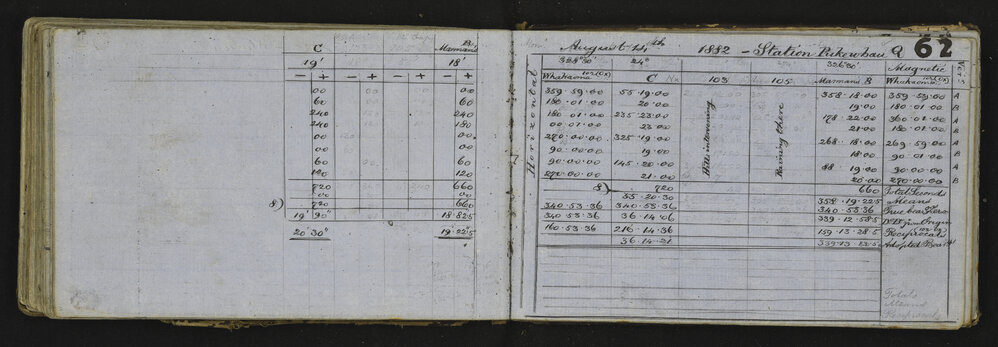 C B
Marmans
19' 18'
− + − +
00 00
60 60
240 240
240 180
00 00
00 00
60 60
120 120
720 660
00 00
8) 720 660
19' 90" 18·82.5
20' 30" 19'22"5
August 14th 1882 - Station Pukewhau 62
328°30' 24° 326°30' Magnetic Vers
Horizontal C 103 105 Marmans B
359·59·00 55·19·00 358·18·00 359·59·00 A
180·01·00 20·00 19·00 180·01·00 B
180·01·00 235·23·00 178·22·00 360·01·00 A
00·01·00 23·00 21·00 180·01·00 B
270·00·00 325·19·00 268·18·00 269·59·00 A
90·00·00 19·00 18·00 90·01·00 B
90·00·00 145·20·00 88·19·00 90·00·00 A
270·00·00 21·00 20·00 270·00·00 B
Hills intervening
Raining there
8) 720 660 Total Seconds
55·20·30 358·19·22.5 Means
340·53·36 340·53·36 340·53·36
340·53·36 36·14·06 339·12·58.5
160·53·36 216·14·36 159·13·28.5 Reciprocals
36·14·21 Adopted
Totals
Means
Reciprocals